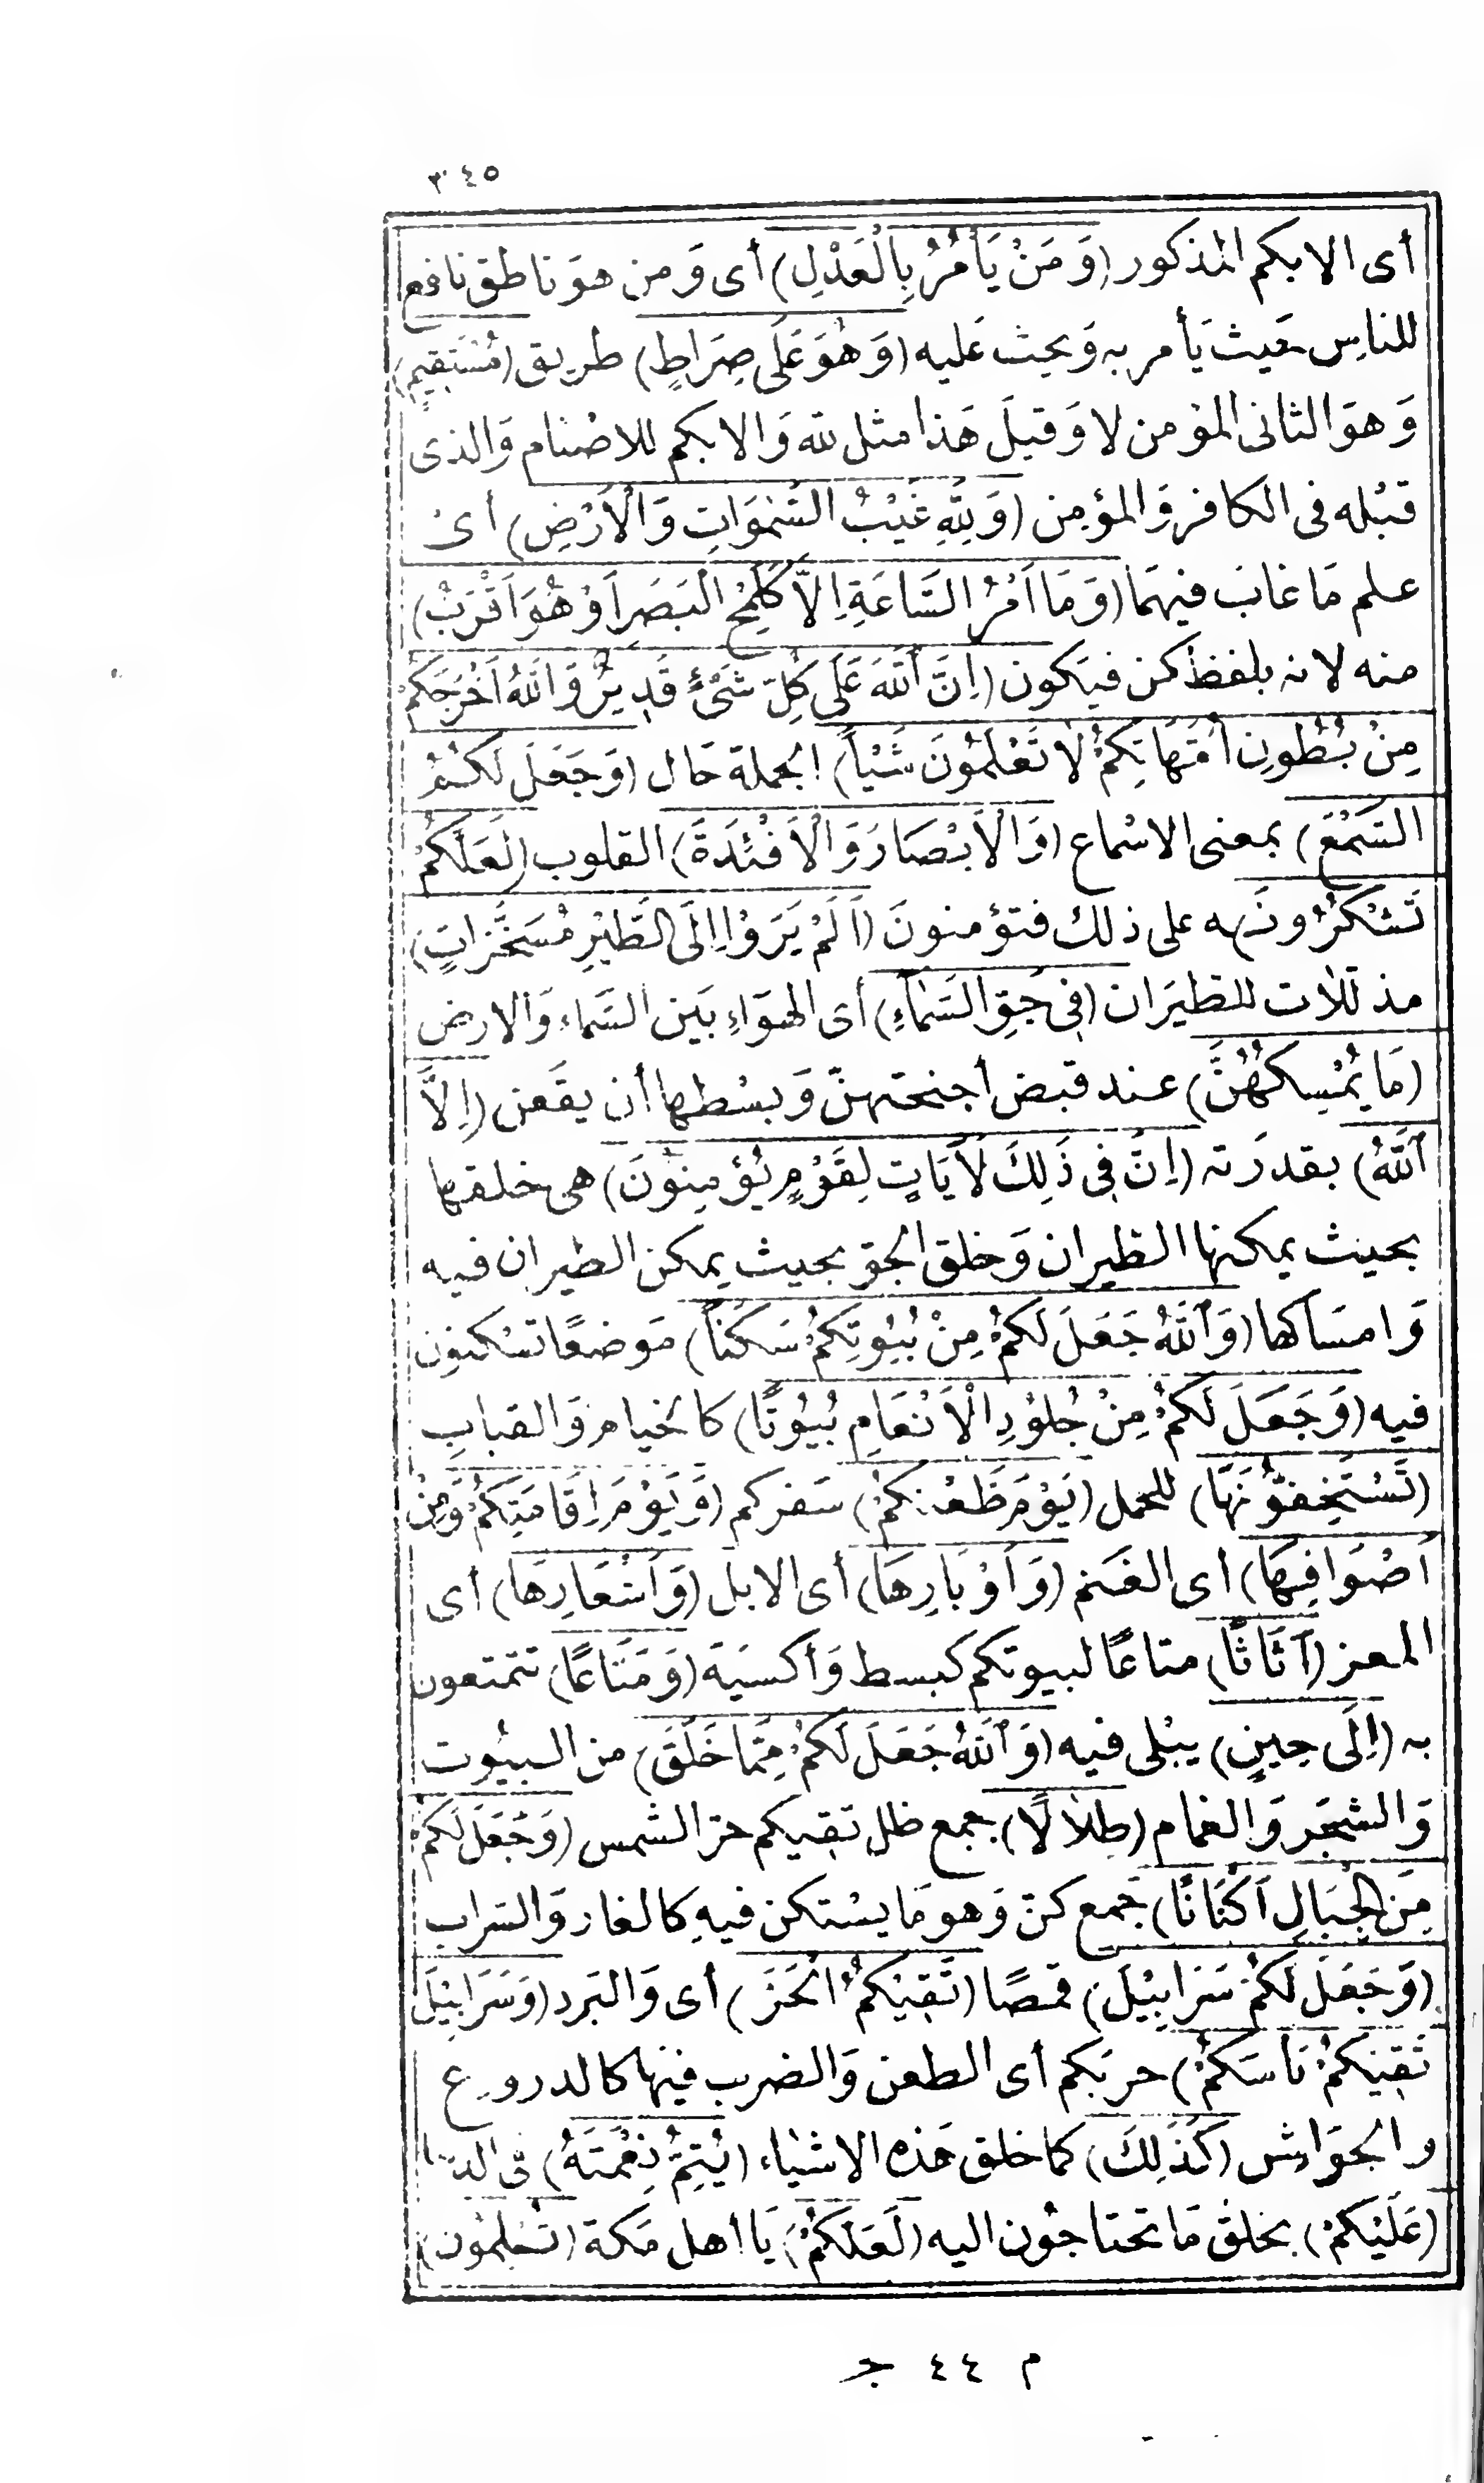 ٣٤٥
أى الابكم المذكور (وَمَنْ يَأْمُرُ بِالْعَدْلِ) أى وَمن هوَ ناطق نافع
للناسِ حَيث يَأمر به وَيحث عَليه (وَهُوَ عَلَى صِرَاطٍ) طريق (مُسْتَقِيمٍ)
وَهوَ الثانى المؤمن لا وَقيلَ هَذا مثل لله وَالابكم للاصْنام وَالذى
قبْله فى الكافر وَالمؤمِن (وَلِلّٰهِ غَيْبُ السَّمٰوَاتِ وَالْاَرْضِ) أىْ
علم مَا غابَ فيهمَا (وَمَا اَمْرُ السَّاعَةِ اِلاَّ كَلَمْحِ الْبَصَرِ اَوْ هُوَ اَقْرَبُ)
منه لانه بلفظ كن فيَكون (اِنَّ اللّٰهَ عَلَى كُلِّ شَىْءٍ قَدِيرٌ وَاللّٰهُ اَخْرَجَكُمْ
مِنْ بُطُونِ اُمَّهَاتِكُمْ لاَ تَعْلَمُونَ شَيْأً) الجملة حَال (وَجَعَلَ لَكُمُ
السَّمْعَ) بمعنى الاسْماع (وَالْاَبْصَارَ وَالْاَفْئِدَةَ) القلوب (لَعَلَّكُمْ
تَشْكُرُونَ) ه على ذلك فتؤمنونَ (اَلَمْ يَرَوْا اِلَى الطَّيْرِ مُسَخَّرَاتٍ)
مذللات للطيَران (فِى جَوِّ السَّمَاءِ) أى الهوَاءِ بَين السَّماء وَالارض
(مَا يُمْسِكُهُنَّ) عند قبض أجنحتهنّ وَبسْطها أن يقَعن (اِلاَّ
اللّٰهُ) بقدرَته (اِنَّ فِى ذَلِكَ لَآيَاتٍ لِقَوْمٍ يُؤْمِنُونَ) هى خلقها
بحيث يمكنها الطيران وَخلق الجوّ بحيث يمكن الطيران فيه
وَامسَاكها (وَاللّٰهُ جَعَلَ لَكُمْ مِنْ بُيُوتِكُمْ سَكَناً) مَوضعًا تسْكنون
فيه (وَجَعَلَ لَكُمْ مِنْ جُلُوُدِ الْاَنْعَامِ بُيُوتًا) كالخيام وَالقبابِ
(تَسْتَخِفُّونَهَا) للحمل (يَوْمَ ظَعْنِكُمْ) سَفركم (وَيَوْمَ اِقَامَتِكُمْ وَمِنْ
اَصْوَافِهَا) أى الغَنم (وَاَوْبَارِهَا) أى الابل (وَاَشْعَارِهَا) أى
المعز (اَثَاثًا) متاعًا لبيوتكم كبسط وَأكسيَة (وَمَتَاعًا) تتمتعون
به (اِلَى حِينٍ) يبْلى فيه (وَاللّٰهُ جَعَلَ لَكُمْ مِمَّا خَلَقَ) من البيُوت
وَالشجَر وَالغمام (ظِلاَلًا) جمع ظل تقيكم حرّ الشمس (وَجَعَلَ لَكُمْ
مِنَ الْجِبَالِ اَكْنَانًا) جَمع كنّ وَهو مَا يسْتكن فيهِ كالغار وَالسَراب
(وَجَعَلَ لَكُمْ سَرَابِيْلَ) قمصًا (تَقِيْكُمُ الْحَرَّ) أى وَالبَرد (وَسَرَابِيْلَ
تَقِيْكُمْ بَأْسَكُمْ) حربَكم أى الطعن وَالضرب فيْها كالدروع
والجوَاشِ (كَذَلِكَ) كما خلق هَذه الاشيَاء (يُتِمُّ نِعْمَتَهُ) فى الدنيا
(عَلَيْكُمْ) بخلق مَا تحتاجُون اليه (لَعَلَّكُمْ) يَا أهل مَكة (تُسْلِمُون)
م ٤٤ ج